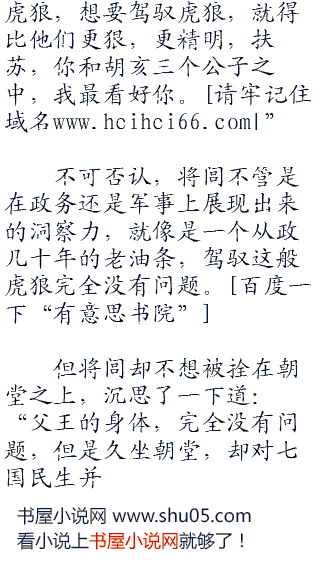 虎狼，想要驾驭虎狼，就得
比他们更狠，更精明，扶
苏，你和胡亥三个公子之
中，我最看好你。[请牢记住
域名www.hcihci66.com|”
不可否认，将闾不管是
在政务还是军事上展现出来
的洞察力，就像是一个从政
几十年的老油条，驾驭这般
虎狼完全没有问题。[百度一
下“有意思书院”]
但将闾却不想被拴在朝
堂之上，沉思了一下道：
“父王的身体，完全没有问
题，但是久坐朝堂，却对七
国民生并
书屋小说网 www.shu05.com
看小说上书屋小说网就够了！